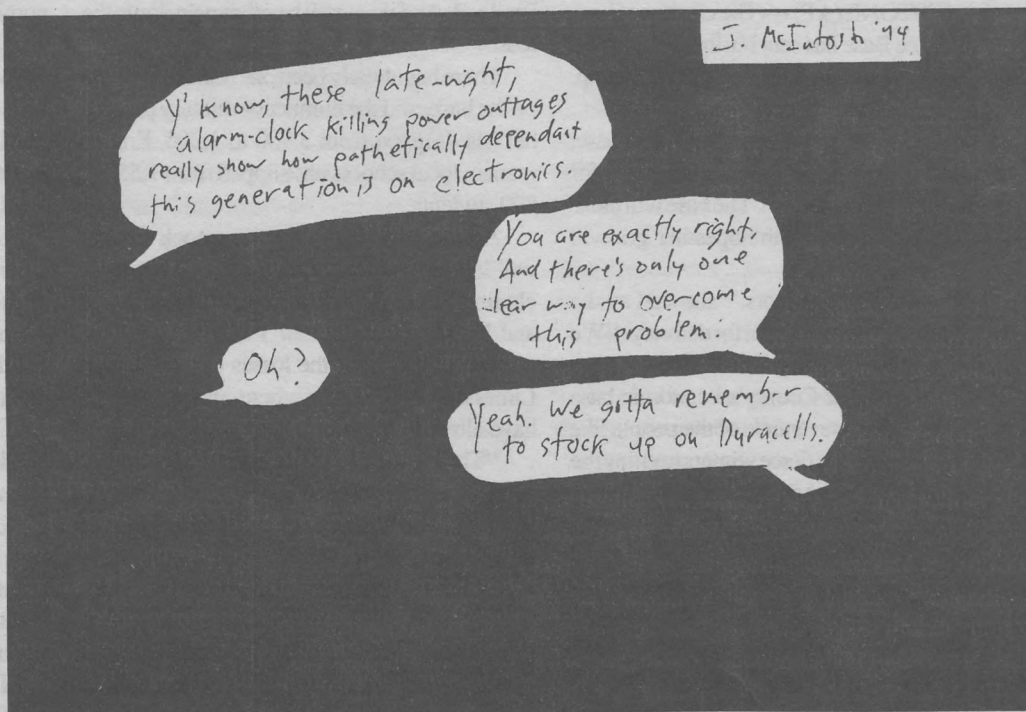 J. McIntosh '94
Y'know, these late-night,
alarm-clock killing power outtages
really show how pathetically dependant
this generation is on electronics.
You are exactly right,
And there's only one
clear way to overcome
this problem.
Oh?
Yeah. We gotta remember
to stock up on Duracells.